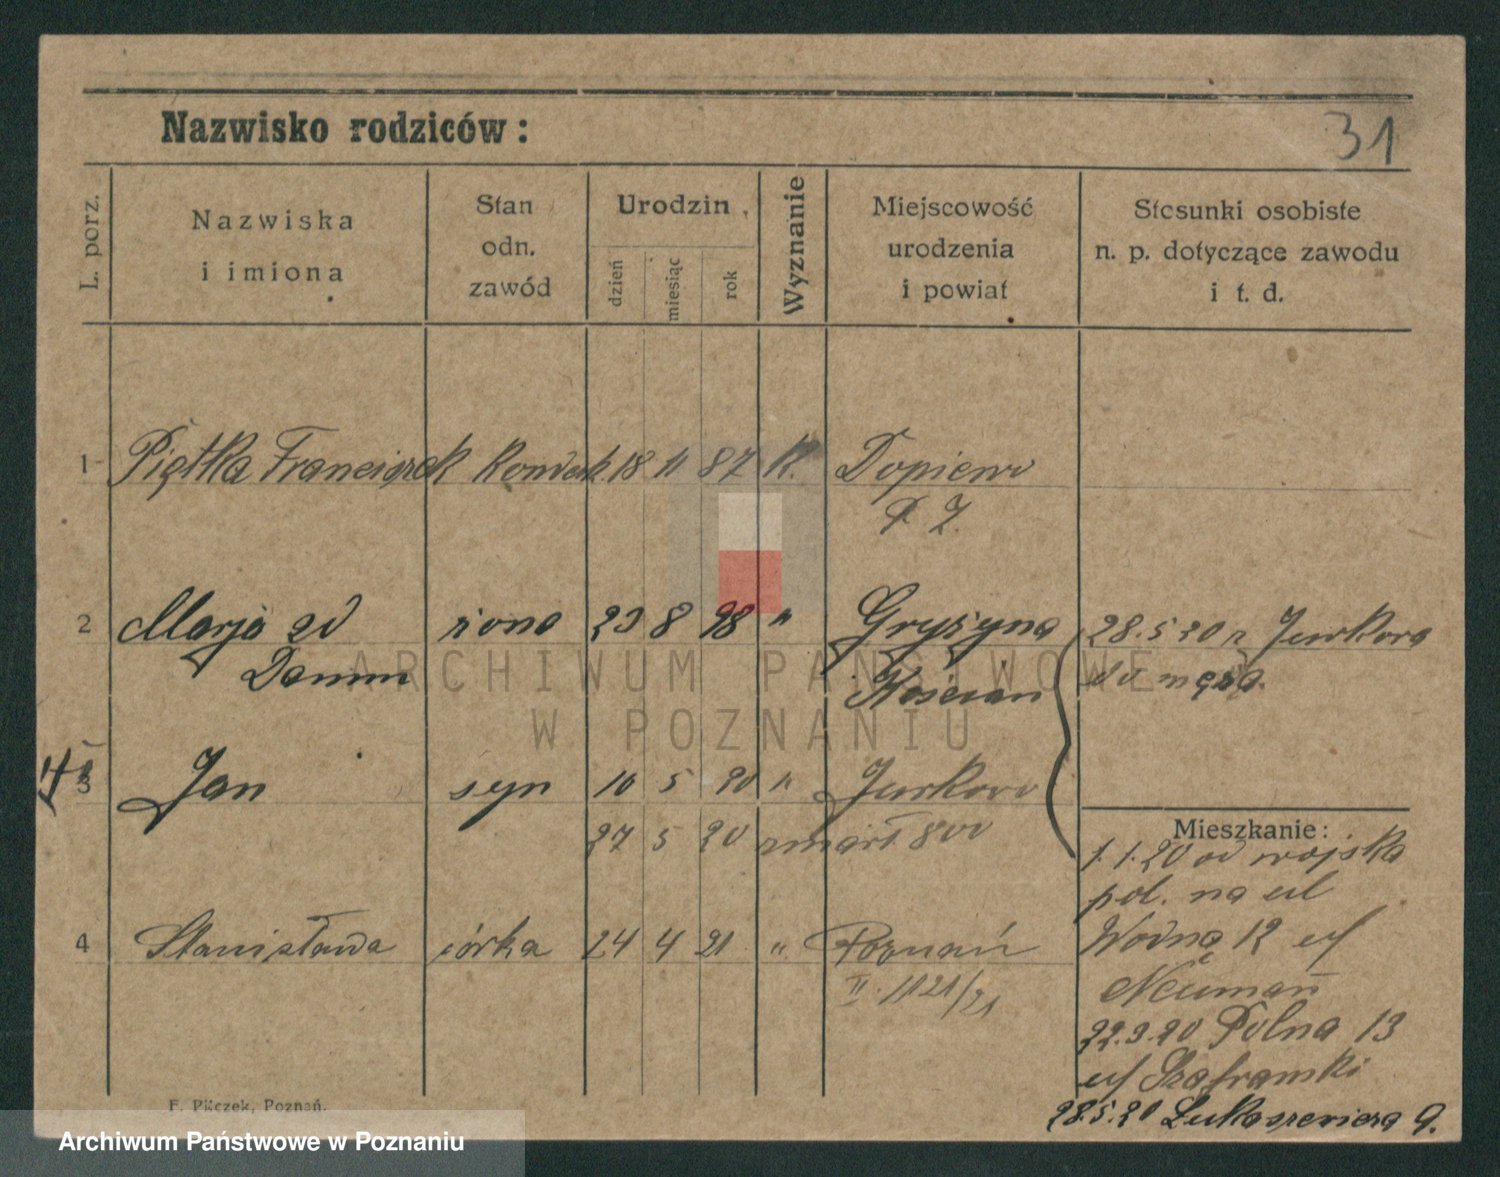 Nazwisko rodziców:
31
L. porz.
Nazwiska
i imiona
Stan
odn.
zawód
Urodzin
dzień
miesiąc
rok
Wyznanie
Miejscowość
urodzenia
i powiat
Stosunki osobiste
n. p. dotyczące zawodu
i t. d.
1 Piątka Franciszek 18 11 87 K. Dopiewo
P. Z.
2 Marja żona 23 8 98 " Gryżyna 28.5.20 z Jurkowa
Kościan do męża.
3 Jan syn 10 5 20 " Jurkowo
27 5 20 zmarł
Mieszkanie:
1.1.20 od wojska
pol. na ul
4 Stanisława córka 24 4 21 " Poznań
II. 1121/21
Wodną 12 u/
Neuman
22.3.20 Polna 13
u/ Szaframski
28.5.20 Łukaszewicza 9.
F. Pilczek, Poznań.
ARCHIWUM PAŃSTWOWE
W POZNANIU
Archiwum Państwowe w Poznaniu